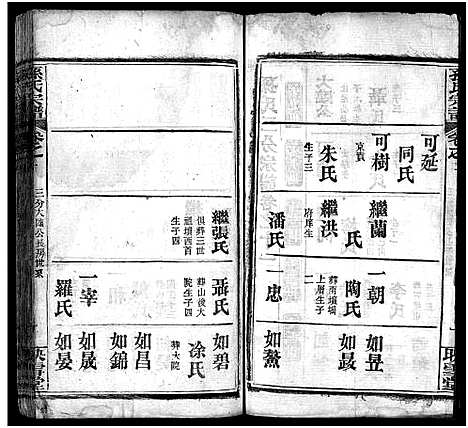 孫氏宗譜
可延
同氏
可樹
京賓
朱氏
生子三
繼蘭
氏
繼洪
府庠生
潘氏
一朝
陶氏
葬南壠塆
上層生子
二
一忠
如昱
如㫤
如鰲
繼張氏
俱葬三世
祖墳西首
生子四
聶氏
葬山後大
院生子四
如碧
凃氏
葬大院
如昌
如錦
一宰
如晟
羅氏
如晏
孫氏宗譜
三分大隆公長房世系
映雪堂